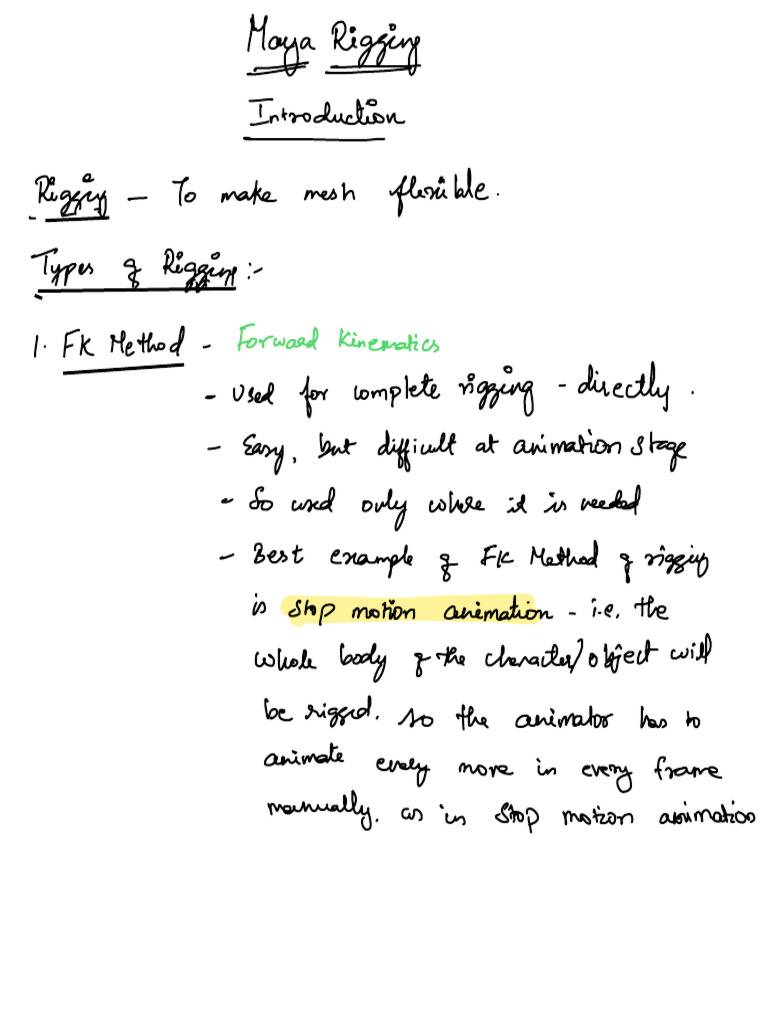 Maya Rigging
Introduction
Rigging - To make mesh flexible.
Types of Rigging :-
1. FK Method - Forward Kinematics
- Used for complete rigging - directly.
- Easy, but difficult at animation stage
- So used only where it is needed
- Best example of FK Method of rigging
is stop motion animation - i.e, the
whole body of the character/object will
be rigged. so the animator has to
animate every move in every frame
manually. as in stop motion animation